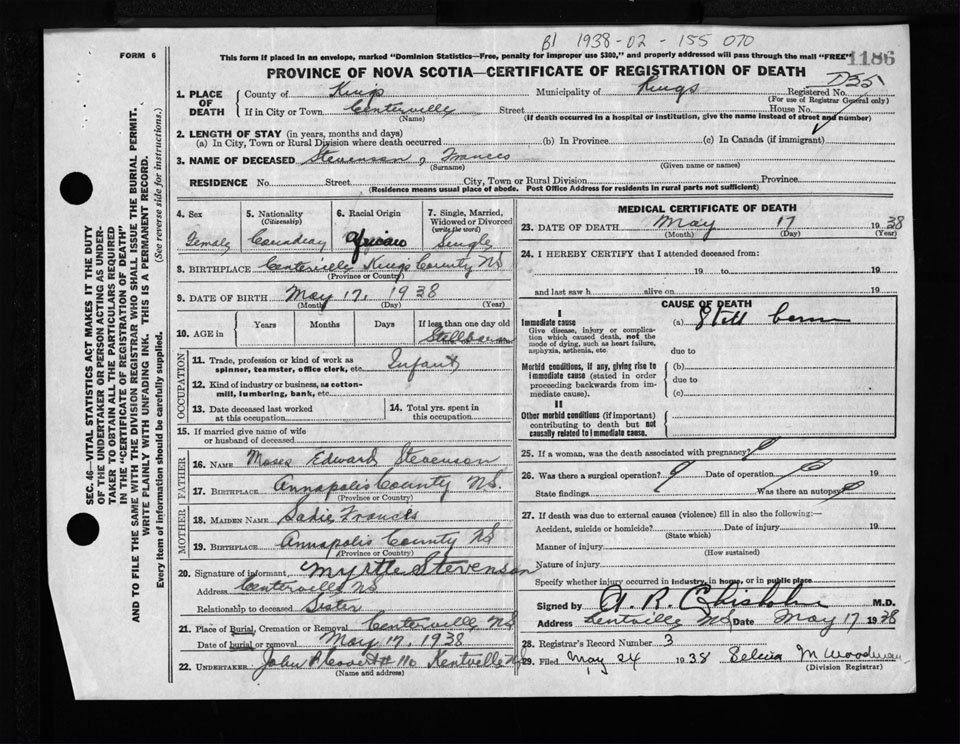 B1 1938-02-155 070
FORM 6
This form if placed in an envelope, marked "Dominion Statistics—Free, penalty for improper use $300," and properly addressed will pass through the mail "FREE"
1186
PROVINCE OF NOVA SCOTIA—CERTIFICATE OF REGISTRATION OF DEATH
1. PLACE OF DEATH County of Kings Municipality of Kings Registered No. D35
(For use of Registrar General only)
If in City or Town Centerville Street House No.
(Name) (If death occurred in a hospital or institution, give the name instead of street and number)
2. LENGTH OF STAY (in years, months and days)
(a) In City, Town or Rural Division where death occurred (b) In Province (c) In Canada (if immigrant)
3. NAME OF DECEASED Stevenson, Frances
(Surname) (Given name or names)
RESIDENCE No. Street City, Town or Rural Division Province
(Residence means usual place of abode. Post Office Address for residents in rural parts not sufficient)
4. Sex Female
5. Nationality (Citizenship) Canadian
6. Racial Origin African
7. Single, Married, Widowed or Divorced (write the word) Single
8. BIRTHPLACE Centerville Kings County NS
(Province or Country)
9. DATE OF BIRTH May 17, 1938
(Month) (Day) (Year)
10. AGE in Years Months Days If less than one day old Stillborn
OCCUPATION
11. Trade, profession or kind of work as spinner, teamster, office clerk, etc. Infant
12. Kind of industry or business, as cotton-mill, lumbering, bank, etc.
13. Date deceased last worked at this occupation
14. Total yrs. spent in this occupation
15. If married give name of wife or husband of deceased
FATHER
16. NAME Moses Edward Stevenson
17. BIRTHPLACE Annapolis County NS.
(Province or Country)
MOTHER
18. MAIDEN NAME Sadie Francis
19. BIRTHPLACE Annapolis County NS
(Province or Country)
20. Signature of informant Myrtle Stevenson
Address Centerville NS
Relationship to deceased Sister
21. Place of Burial, Cremation or Removal Centerville NS
Date of burial or removal May 17, 1938
22. UNDERTAKER John Kentville NS
(Name and address)
MEDICAL CERTIFICATE OF DEATH
23. DATE OF DEATH May 17 1938
(Month) (Day) (Year)
24. I HEREBY CERTIFY that I attended deceased from:
19 to 19
and last saw h alive on 19
CAUSE OF DEATH
I
Immediate cause (a) Still born
Give disease, injury or complication which caused death, not the mode of dying, such as heart failure, asphyxia, asthenia, etc.
due to
Morbid conditions, if any, giving rise to immediate cause (stated in order proceeding backwards from immediate cause).
(b)
due to
(c)
II
Other morbid conditions (if important) contributing to death but not causally related to immediate cause.
25. If a woman, was the death associated with pregnancy
26. Was there a surgical operation? Date of operation 19
State findings Was there an autopsy
27. If death was due to external causes (violence) fill in also the following:—
Accident, suicide or homicide? Date of injury 19
(State which)
Manner of injury
(How sustained)
Nature of injury
Specify whether injury occurred in industry, in home, or in public place
Signed by A. R. Chisholm M.D.
Address Kentville NS Date May 17 1938
28. Registrar's Record Number 3
29. Filed May 24 1938 Selena M Woodman
(Division Registrar)
SEC. 46—VITAL STATISTICS ACT MAKES IT THE DUTY
OF THE UNDERTAKER OR PERSON ACTING AS UNDER-
TAKER TO OBTAIN ALL THE PARTICULARS REQUIRED
IN THE "CERTIFICATE OF REGISTRATION OF DEATH"
AND TO FILE THE SAME WITH THE DIVISION REGISTRAR WHO SHALL ISSUE THE BURIAL PERMIT.
WRITE PLAINLY WITH UNFADING INK. THIS IS A PERMANENT RECORD.
Every Item of information should be carefully supplied. (See reverse side for instructions.)